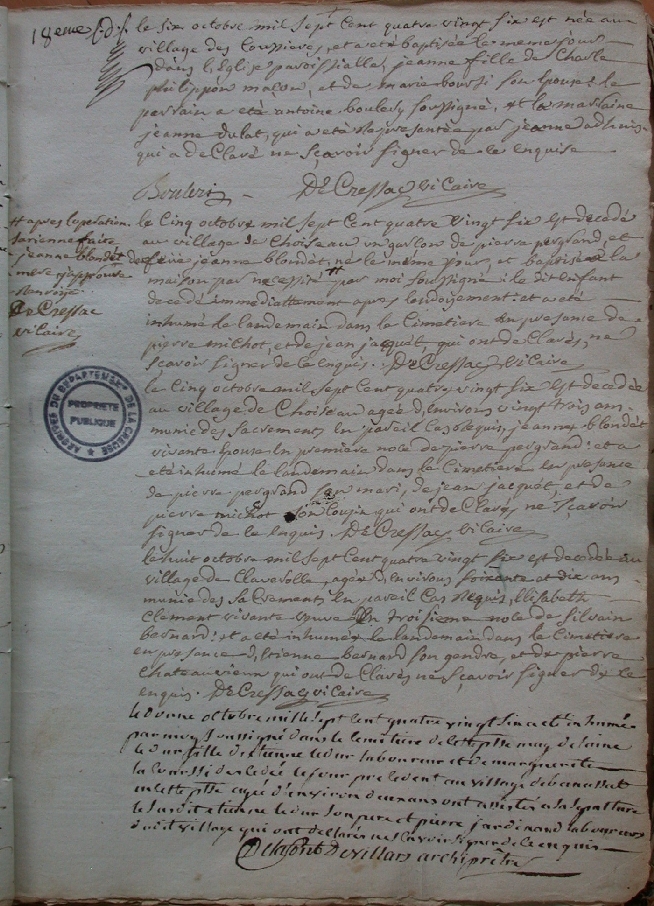 18eme
le six octobre mil sept Cent quatre vingt six est née au
village des toussieres, et a eté baptisée le meme jour
dans l'Eglise paroissialle, jeanne fille de Charle
philippon maçon, et de marie boursi son Epouse: le
parrain a eté antoine boulesi soussigné, et la marraine
jeanne dulat, qui a eté representée par jeanne
qui a declaré ne sçavoir signer de le enquise
Boulezi DeCressac vicaire
apres l'operation
sarienne faite
jeanne blondet
mere
DeCressac
vicaire
le Cinq octobre mil sept Cent quatre vingt six Est decedé
au village de Choiseau un garçon de pierre pergrand, et
feüe jeanne blondet, né le même jour, et baptisé a la
maison par necessité par moi soussigné: le dit enfant
decedé immediattement apres l'ondoiement: et a eté
inhumé le landemain dans le Cimetiere en presance de
pierre michot, et de jean jacquet, qui ont declarés, ne
sçavoir signer de le enquis. DeCressac vicaire
le Cinq octobre mil sept Cent quatre vingt six est decedée
au village de Choiseau agée d'environs vingt trois ans,
munie des sacrements en pareil Cas requis, jeanne blondet
vivante Epouse En premiere noce de pierre pergrand: et a
eté inhumé le landemain dans le Cimetiere en presance
de pierre pergrand son mari, de jean jacquet, et de
pierre michot son Cousin qui ont declarés, ne sçavoir
signer de le Enquis DeCressac vicaire
ARCHIVES DU DEPARTEMENT DE LA CREUSE
PROPRIETE
PUBLIQUE
le huit octobre mil sept Cent quatre vingt six est decedée au
village de Claverolle, agée d'environs soixante et dix ans
munie des sacrements en pareil Cas requis, Elisabeth
Clement vivante veuve En troisieme noce de Silvain
bernard: et a eté inhumée le landemain dans le Cimetiere
en presance d'Etienne bernard son gendre, et de pierre
Chateauvieux qui ont declarés ne sçavoir signer de le
enquis. DeCressac vicaire
le donne octobre mille sept cent quatre vingt six a eté inhumée
par moy soussigné dans le cimetiere de cette psse
ledur fille d'etienne ledur laboureur et de marguerite
decedée le jour precedent au village de
en cette psse agée d'environ deux ans ont assistés a la sepulture
le susdit etienne ledur son pere et pierre jardinaud laboureurs
dudit village qui ont declarés ne sçavoir signer de le enquis
Delafont Devillars archiprêtre